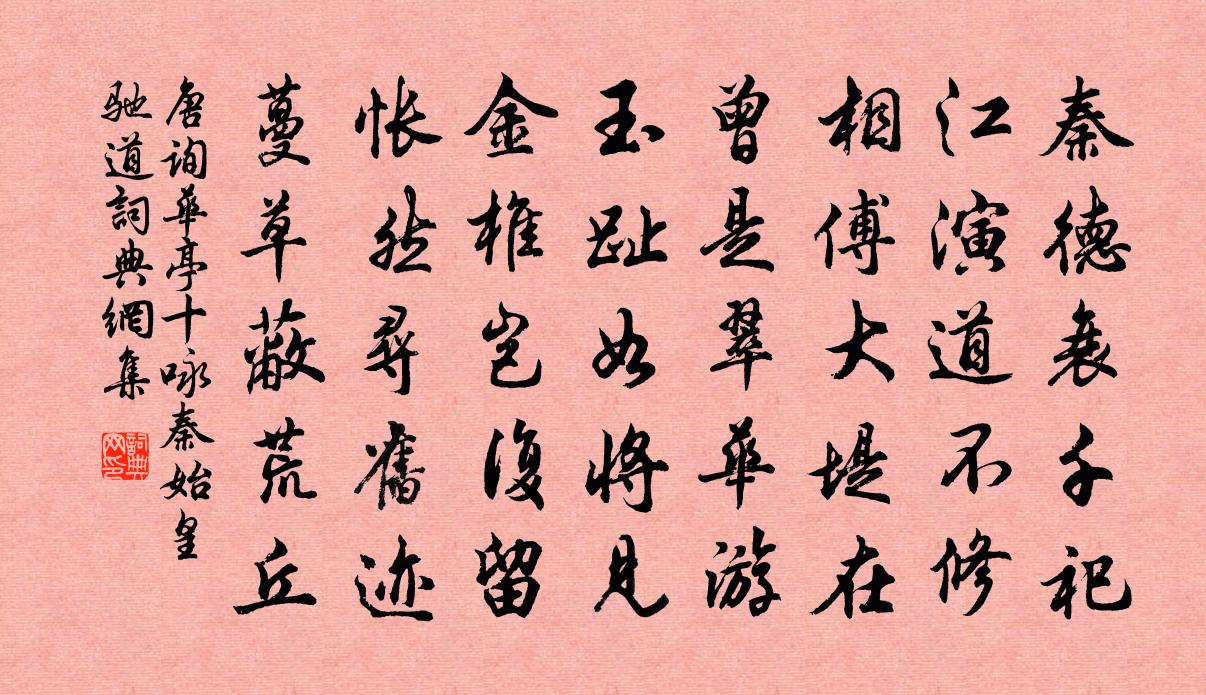 秦德衰千祀
江演道不修
相傅大堤在
曾是翠華游
玉趾如將見
金椎豈復留
悵然尋舊迹
蔓草蔽荒丘
唐詢華亭十咏秦始皇
馳道詞典網集
詞典網印